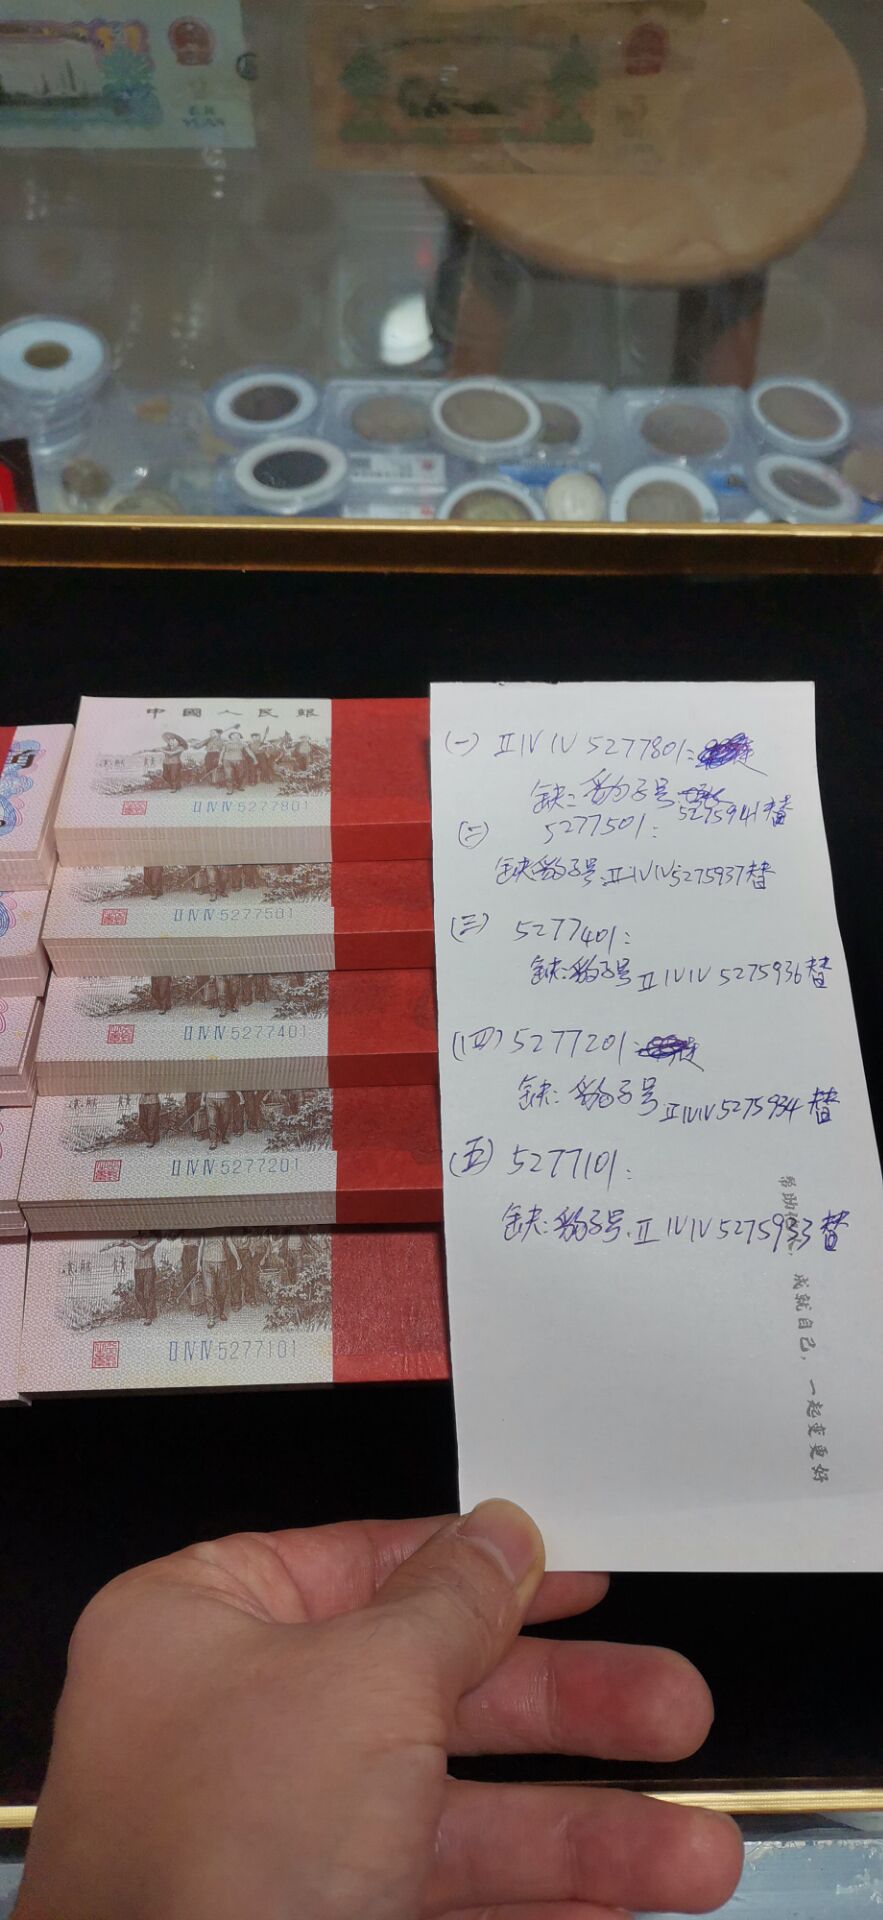 中國人民銀
ⅡⅣⅣ5277801
ⅡⅣⅣ5277501
ⅡⅣⅣ5277401
ⅡⅣⅣ5277201
ⅡⅣⅣ5277101
(一) ⅡⅣⅣ 5277801:
缺:豹子号 5275941替
(二) 5277501:
缺豹子号.ⅡⅣⅣ5275937替
(三) 5277401:
缺:豹子号 ⅡⅣⅣ 5275936替
(四) 5277201:
缺:豹子号 ⅡⅣⅣ5275934替
(五) 5277101:
缺:豹子号.ⅡⅣⅣ5275933替
帮助 成就自己,一起变更好